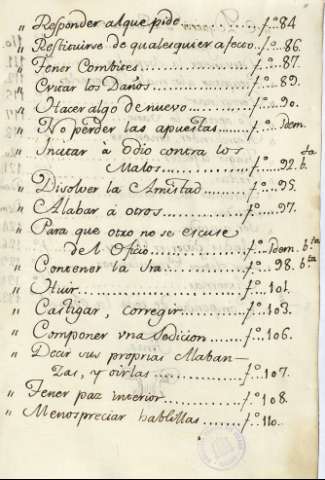 „ Responder al que pide........fº.84.
„ Restituirse de qualesquier afecto..fº..86.
„ Tener Combites..............fº....87.
„ Evitar los Daños.............fº....89.
„ Hacer algo de nuevo..........fº...90.
„ No perder las apuestas.......fº...Idem.
„ Incitar à odio contra los
Malos............fº...92.bta
„ Disolver la Amistad.........fº...95.
„ Alabar à otros..............fº...97.
„ Para que otro no se escuse
del Oficio.............fº..Idem.bta
„ Contener la Ira............fº.98.bta
„ Huir......................fº..101.
„ Castigar, corregir........fº...103.
„ Componer vna Sedicion.....fº...106.
„ Decir sus proprias Alaban-
zas, y oirlas...........fº..107.
„ Tener paz interior........fº...108.
„ Menospreciar hablillas.....fº..110.